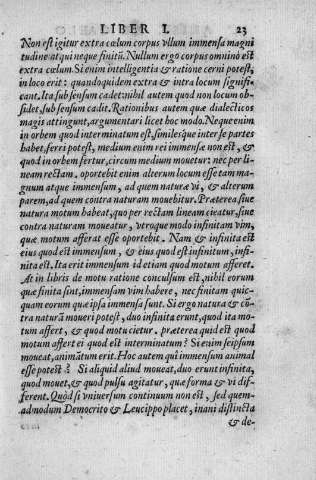 LIBER I. 23
Non est igitur extra cœlum corpus vllum immensa magni
tudine atqui neque finitũ. Nullum ergo corpus omnino est
extra cœlum. Si enim intelligentia & ratione cerni potest,
in loco erit: quandoquidem extra & intra locum signifi-
cant. Ita sub sensum cadet: nihil autem quod non locum ob-
sidet, sub sensum cadit. Rationibus autem quæ dialecticos
magis attingunt, argumentari licet hoc modo. Neque enim
in orbem quod interminatum est, similesque inter se partes
habet, ferri potest, medium enim rei immensæ non est, &
quod in orbem fertur, circum medium mouetur: nec per li-
neam rectam. oportebit enim alterum locum esse tam ma-
gnum atque immensum, ad quem natura vi, & alterum
parem, ad quem contra naturam mouebitur. Præterea siue
natura motum habeat, quo per rectam lineam cieatur, siue
contra naturam moueatur, vtroque modo infinitam vim,
quæ motum afferat esse oportebit. Nam & infinita est
eius quod est immensum, & eius quod est infinitum, infi-
nita est. Ita erit immensum id etiam quod motum afferet.
At in libris de motu ratione conclusum est, nihil eorum
quæ finita sint, immensam vim habere, nec finitam quic-
quam eorum quæ ipsa immensa sunt. Si ergo natura & cõ-
tra naturã moueri potest, duo infinita erunt, quod ita mo-
tum affert, & quod motu cietur. præterea quid est quod
motum affert ei quod est interminatum? Si enim seipsum
moueat, animatum erit. Hoc autem qui immensum animal
esse potest? Si aliquid aliud moueat, duo erunt infinita,
quod mouet, & quod pulsu agitatur, quæ forma & vi dif-
ferent. Quòd si vniuersum continuum non est, sed quem-
admodum Democrito & Leucippo placet, inani distincta
& de-